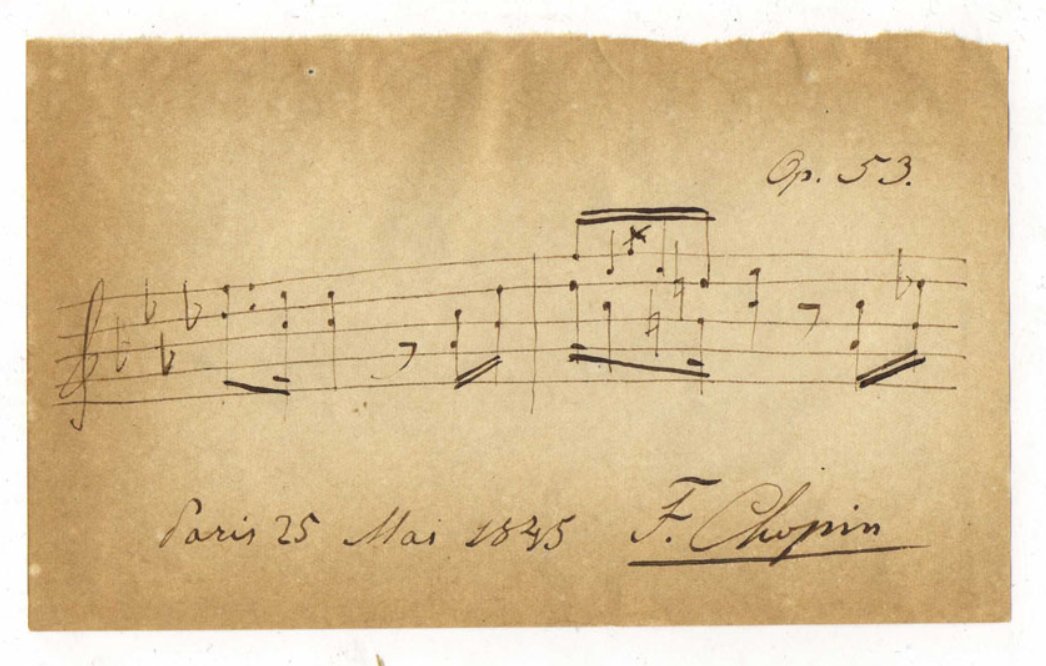 Op. 53.
Paris 25 Mai 1845 F. Chopin